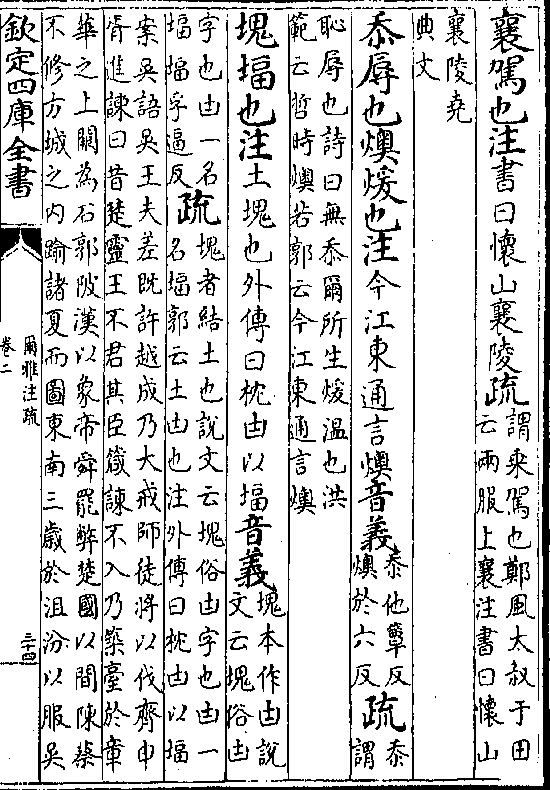 襄駕也注書曰懷山襄陵疏
謂乘駕也鄭風太叔于田
云兩服上襄注書曰懷山
襄陵堯
典文
忝辱也燠煖也注今江東通言燠音義
忝他簟反
燠於六反
疏
忝
謂
恥辱也詩曰無忝爾所生煖溫也洪
範云哲時燠若郭云今江東通言燠
塊堛也注土塊也外傳曰枕凷以堛音義
塊本作凷說
文云塊俗凷
字也凷一名
堛堛孚逼反
疏
塊者結土也說文云塊俗凷字也凷一
名堛郭云土凷也注外傳曰枕凷以堛
案吳語吳王夫差既許越成乃大戒師徒將以伐齊申
胥進諫曰昔楚靈王不君其臣箴諫不入乃築臺於章
華之上闕為石郭陂漢以象帝舜罷弊楚國以間陳蔡
不修方城之內踰諸夏而圖東南三歲於沮汾以服吳
欽定四庫全書
爾雅注疏
卷二
三十四